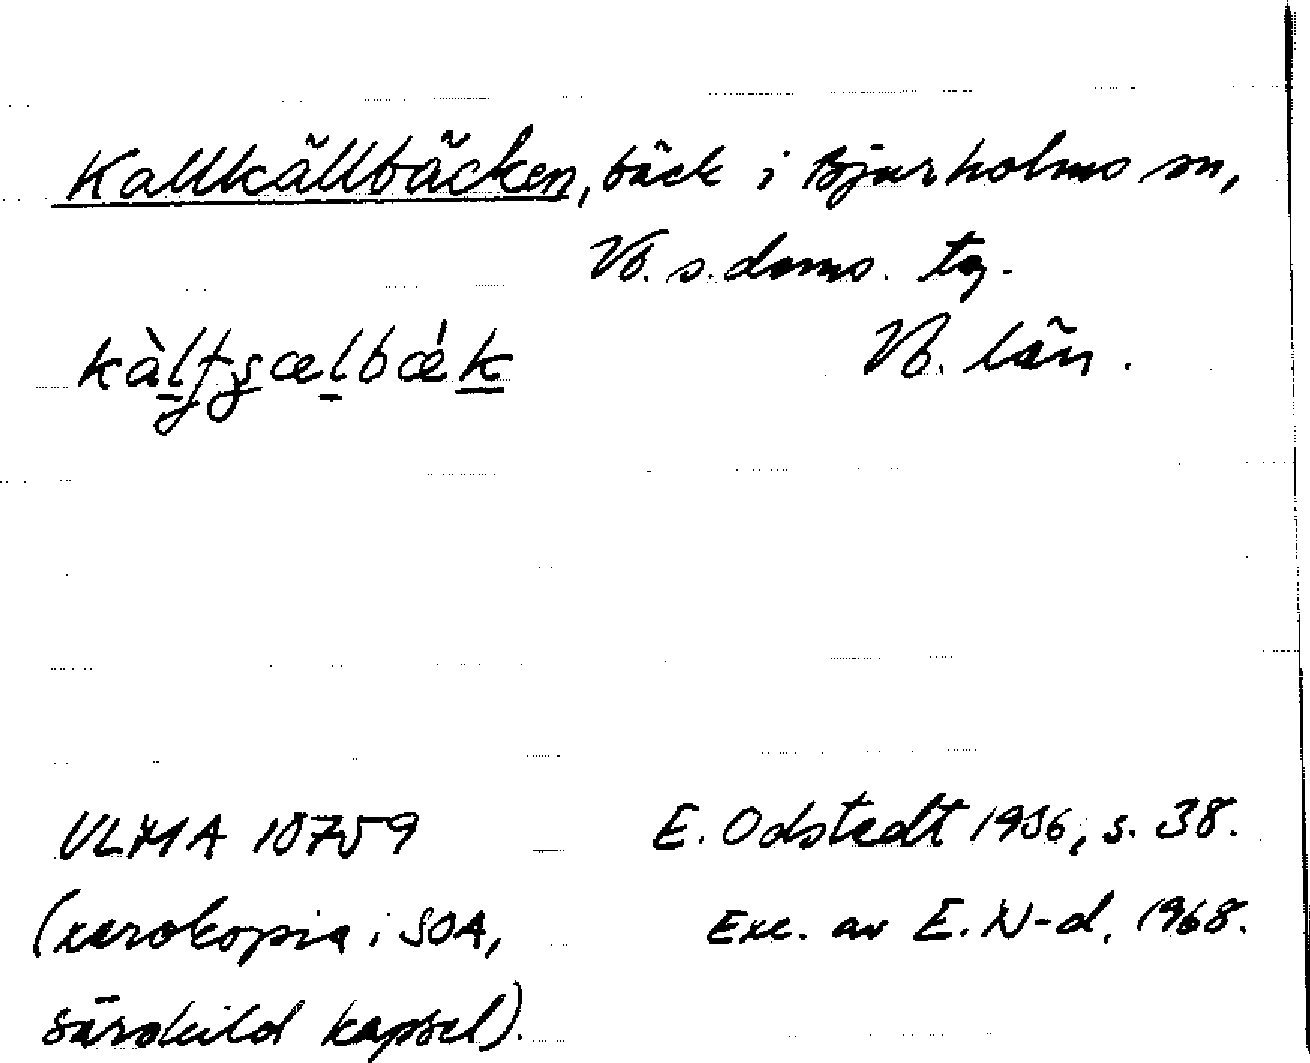 Kallkällbäcken, bäck i Bjurholms sn,
Vb. s. doms. tg.
Vb. län.
ULMA 10759
E. Odstedt 1936, s. 38.
(xerokopia i SOA,
Exc. av E. N-d. 1968.
särskild kapsel).